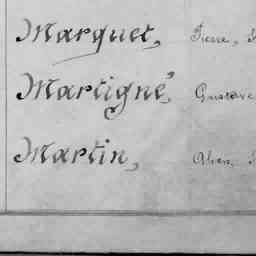 Marquet, Pierre,
Martigné, Gustave
Martin,